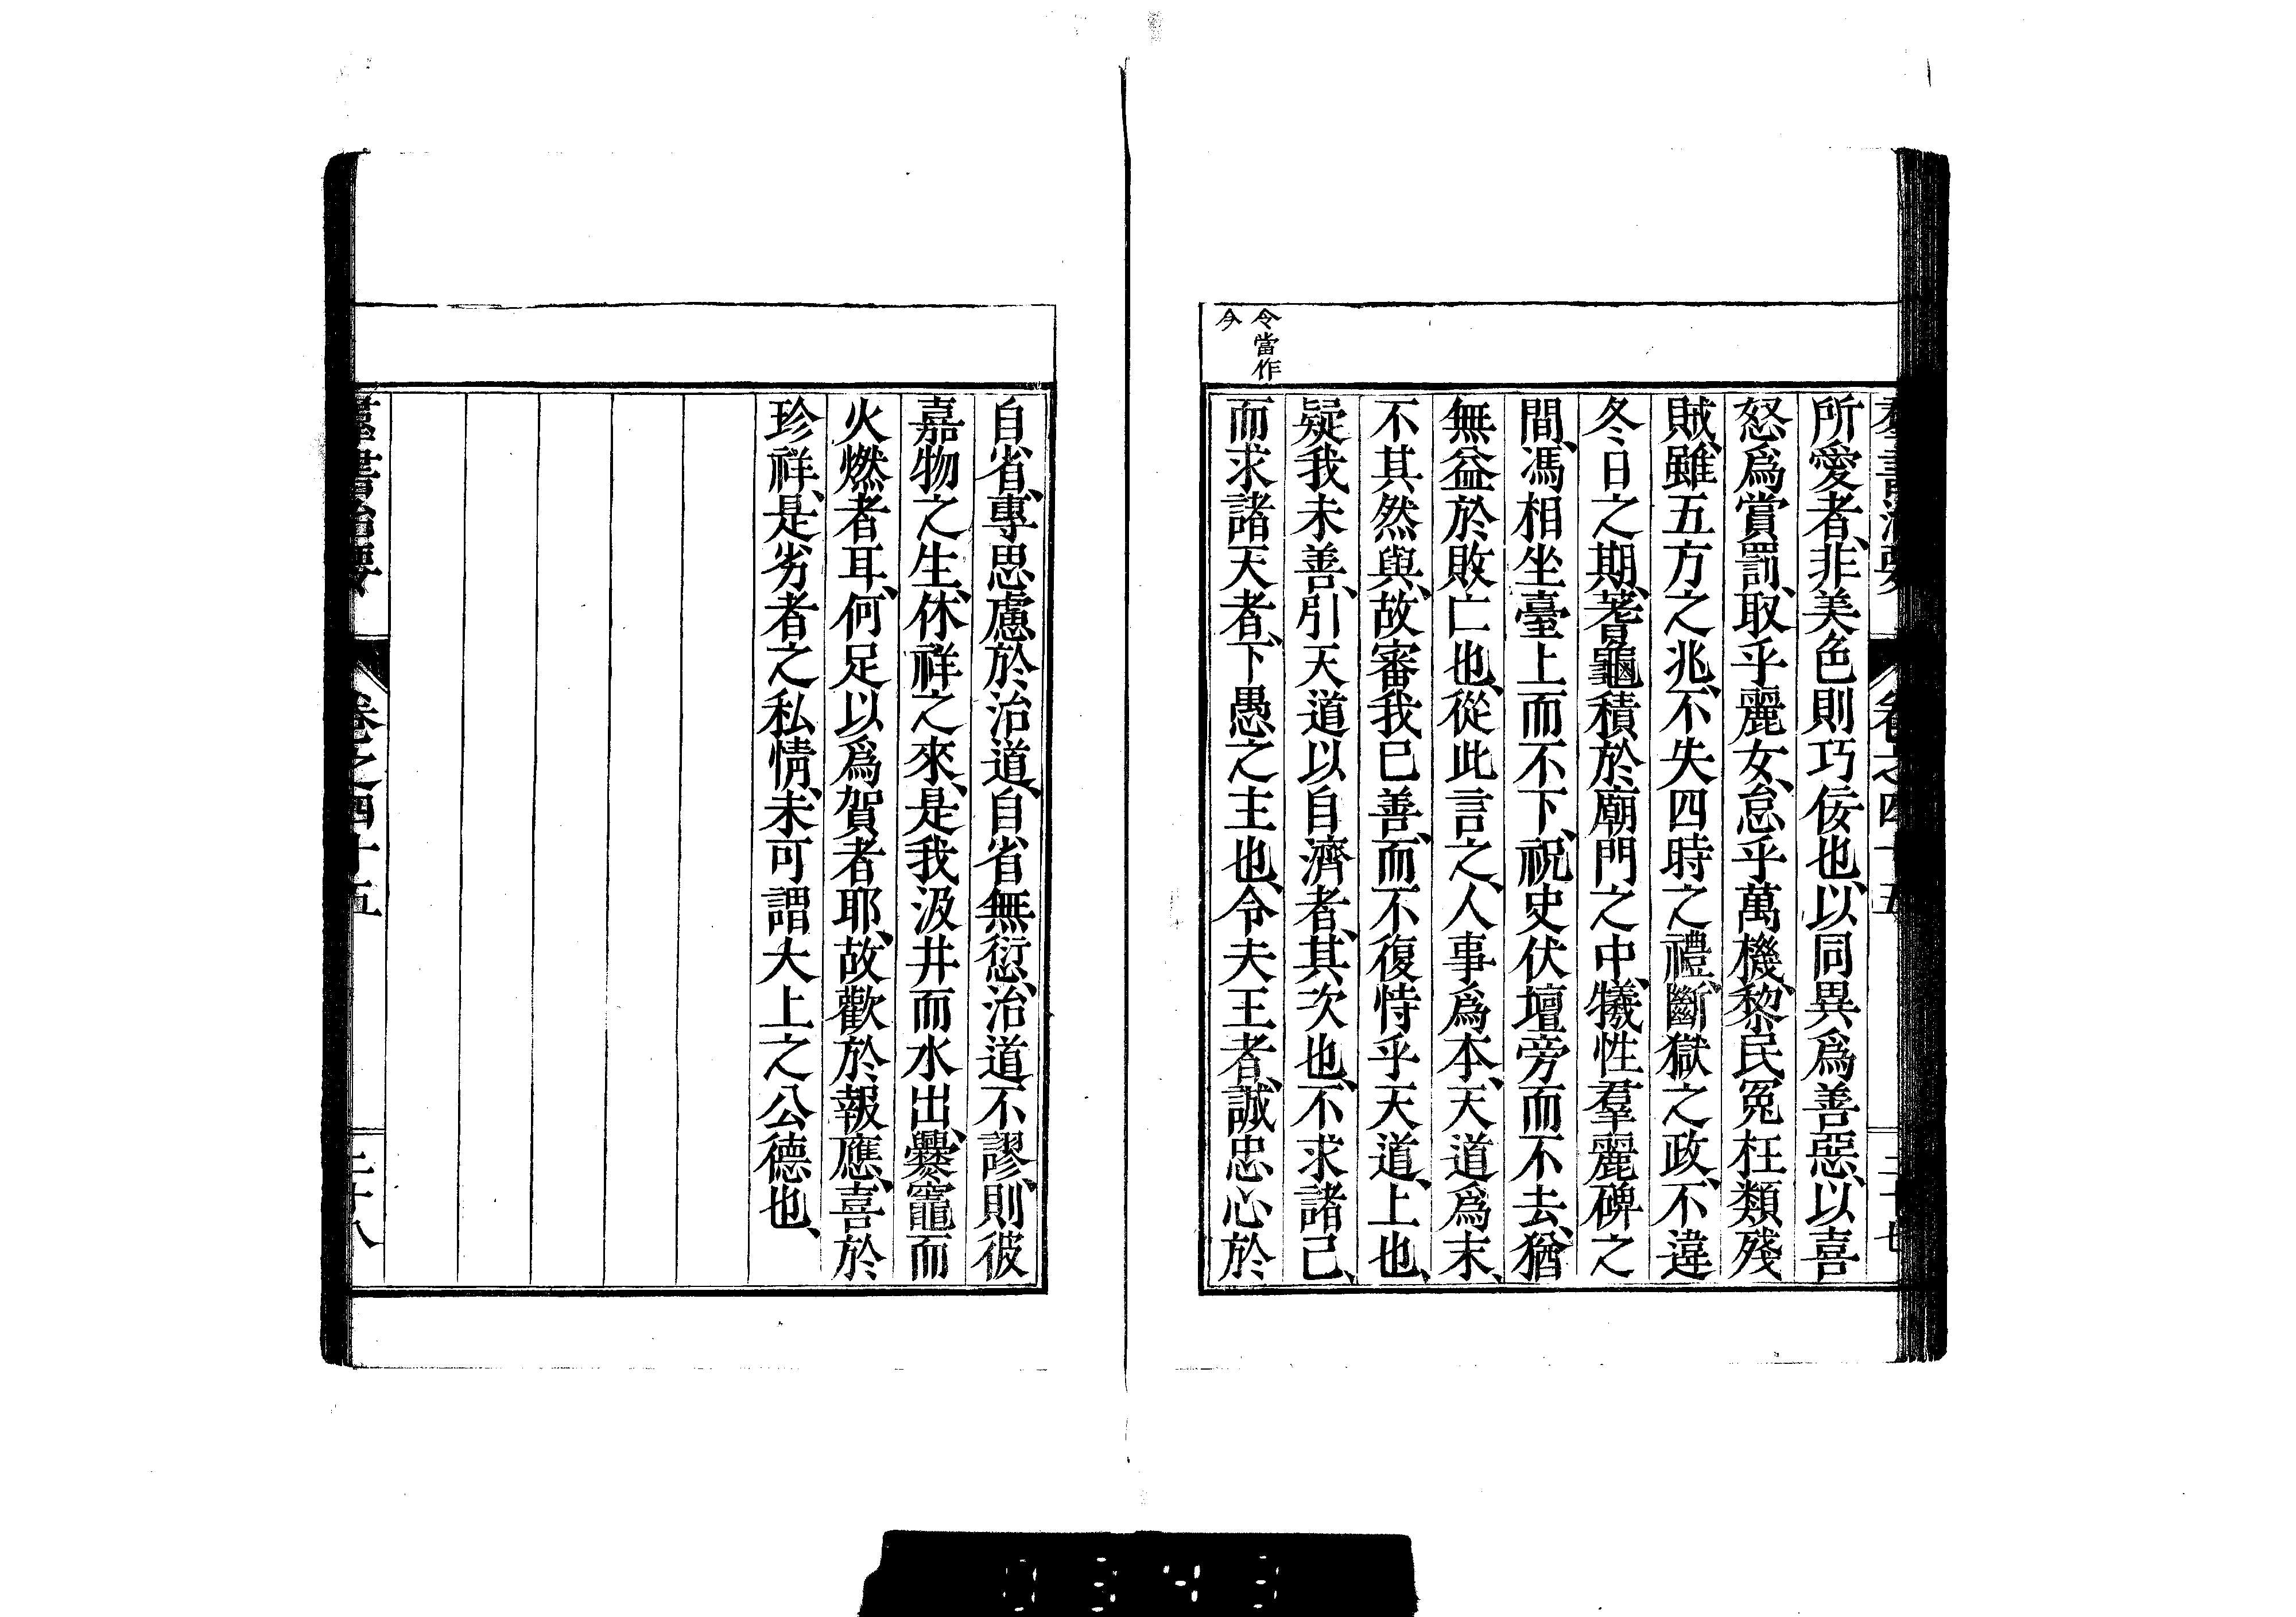 羣書治要
卷之四十五
二十七
所愛者、非美色則巧佞也、以同異爲善惡、以喜
怒爲賞罰、取乎麗女、怠乎萬機、黎民冤枉類殘
賊、雖五方之兆、不失四時之禮、斷獄之政、不違
冬日之期、蓍龜積於廟門之中、犧牲羣麗碑之
間、馮相坐臺上而不下、祝史伏壇旁而不去、猶
無益於敗亡也、從此言之、人事爲本、天道爲末、
不其然與、故審我已善、而不復恃乎天道、上也、
疑我未善、引天道以自濟者、其次也、不求諸己、
而求諸天者、下愚之主也、令夫王者、誠忠心於
令當作
今
自省、專思慮於治道、自省無愆、治道不謬、則彼
嘉物之生、休祥之來、是我汲井而水出、爨竈而
火燃者耳、何足以爲賀者耶、故歡於報應、喜於
珍祥、是劣者之私情、未可謂大上之公德也、
羣書治要
卷之四十五
二十八
0343